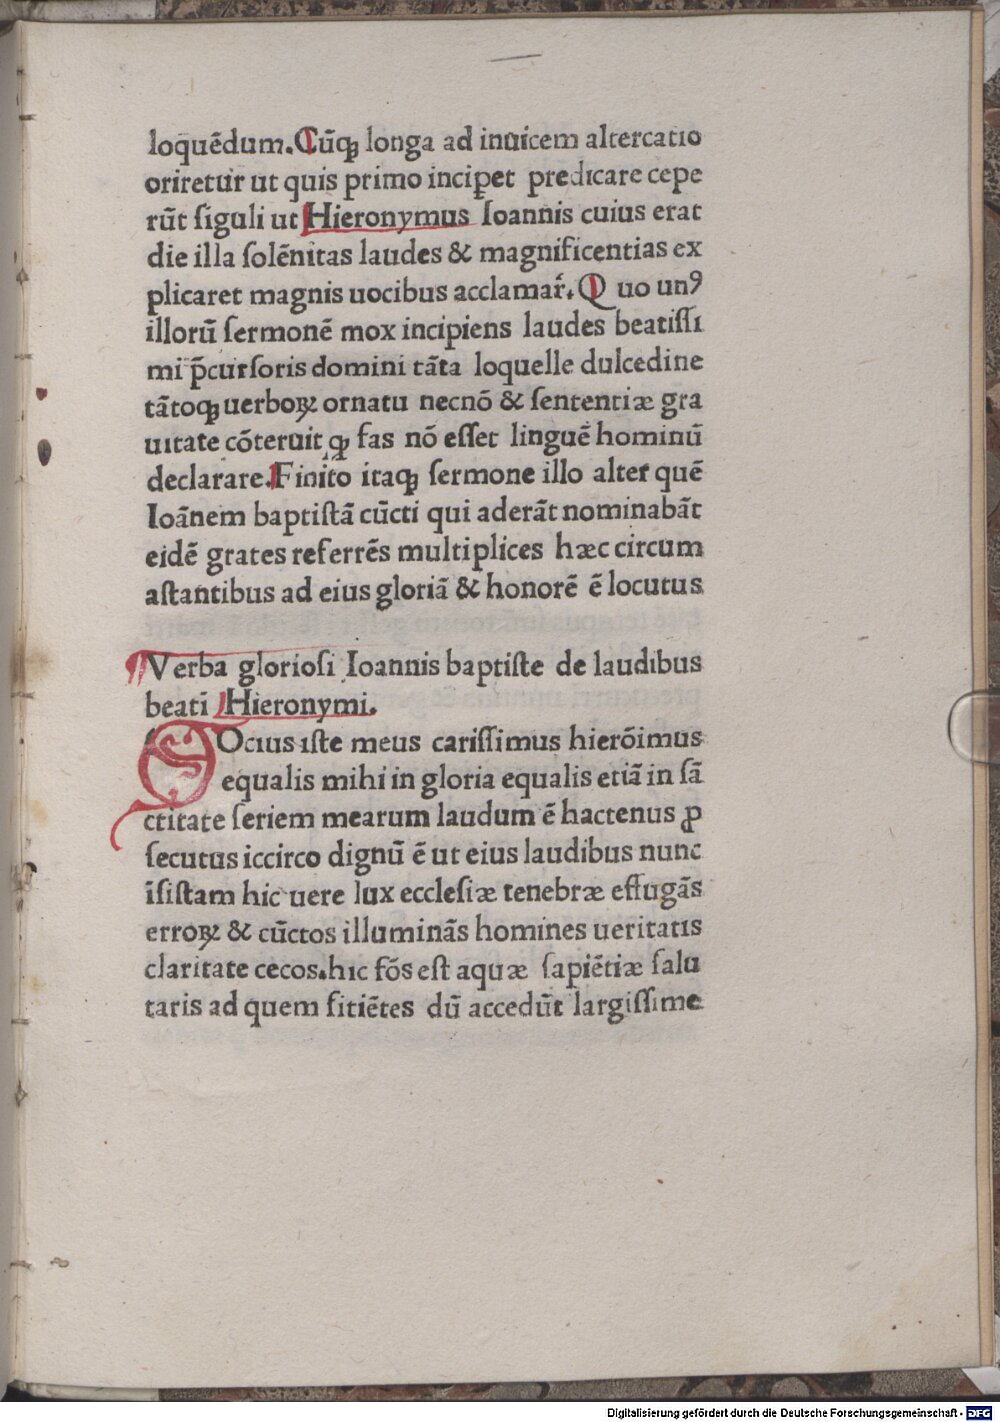 loquēdum. Cūqꝫ longa ad inuicem altercatio
oriretur ut quis primo incipꝫet predicare cepe
rūt ſiguli ut Hieronymus Ioannis cuius erat
die illa ſolēnitas laudes & magnificentias ex
plicaret magnis uocibus acclamar̄. Quo unꝰ
illorū ſermonē mox incipiens laudes beatiſſi
mi p̄curſoris domini tāta loquelle dulcedine
tātoqꝫ uerboꝝ ornatu necnō & ſententiæ gra
uitate cōteruit qꝫ fas nō eſſet linguē hominū
declarare. Finito itaqꝫ ſermone illo alter quē
Ioānem baptiſtā cūcti qui aderāt nominabāt
eidē grates referrēs multiplices hæc circum
aſtantibus ad eius gloriā & honorē ē locutus
¶ Verba glorioſi Ioannis baptiſte de laudibus
beati Hieronymi.
SOcius iſte meus cariſſimus hierōimus
equalis mihi in gloria equalis etiā in ſā
ctitate ſeriem mearum laudum ē hactenus ꝓ
ſecutus iccirco dignū ē ut eius laudibus nunc
īſiſtam hic uere lux eccleſiæ tenebræ effugās
erroꝝ & cūctos illuminās homines ueritatis
claritate cecos. hic fōs eſt aquæ ſapiētiæ ſalu
taris ad quem ſitiētes dū accedūt largiſſime
Digitalisierung gefördert durch die Deutsche Forschungsgemeinschaft - DFG